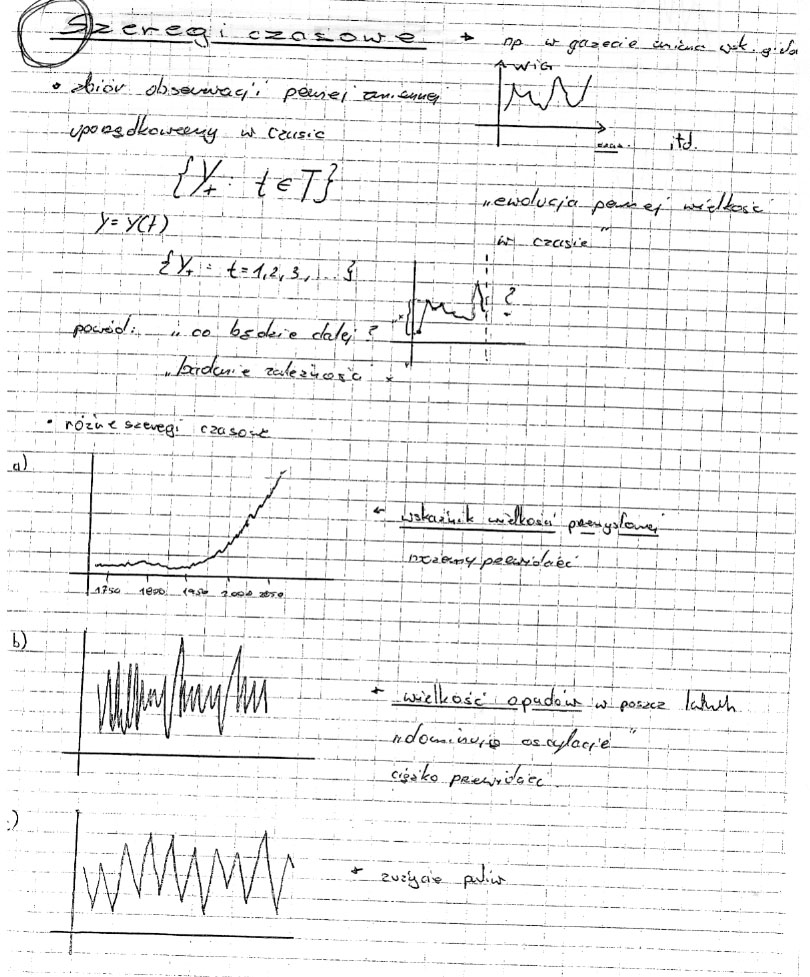 Szeregi czasowe → np. w gazecie zmiana wsk. giełd
WIG
czas. itd.
• zbiór obserwacji pewnej zmiennej
uporządkowany w czasie
{Y_t : t ∈ T}
"ewolucja pewnej wielkości
w czasie"
Y = Y(t)
{Y_t : t = 1, 2, 3, ...}
?
powód: "co będzie dalej?
"badanie zależności
• różne szeregi czasowe
a)
← wskaźnik wielkości przemysłowej
możemy przewidzieć
1750 1800 1950 2000 2050
b)
← wielkość opadów w poszcz latach
"dominują oscylacje"
ciężko przewidzieć
.)
← zużycie paliw